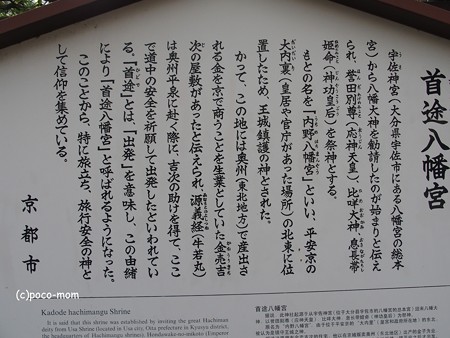 首途八幡宮
宇佐神宮(大分県宇佐市にある八幡宮の総本
宮)から八幡大神を勧請したのが始まりと伝え
られ、誉田別尊(応神天皇)・比咩大神・息長帯
姫命(神功皇后)を祭神とする。
もとの名を「内野八幡宮」といい、平安京の
大内裏(皇居や官庁があった場所)の北東に位
置したため、王城鎮護の神とされた。
かつて、この地には奥州(東北地方)で産出さ
れる金を京で商うことを生業としていた金売吉
次の屋敷があったと伝えられ、源義経(牛若丸)
は奥州平泉に赴く際に、吉次の助けを得て、ここ
で道中の安全を祈願して出発したといわれてい
る。「首途」とは、「出発」を意味し、この由緒
により「首途八幡宮」と呼ばれるようになった。
このことから、特に旅立ち、旅行安全の神と
して信仰を集めている。
京都市
(c)poco-mom
Kadode hachimangu Shrine
It is said that this shrine was established by inviting the great Hachiman
deity from Usa Shrine (located in Usa city, Oita prefecture in Kyusyu district,
the headquarters of Hachimangu shrines). Hondawake-no-mikoto (Emperor
首途八幡宮